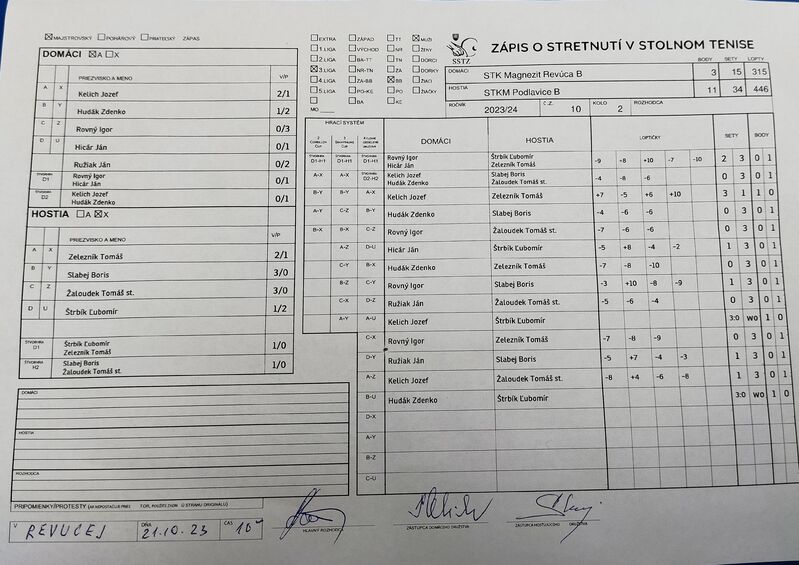 MAJSTROVSKÝ POHÁROVÝ PRIATEĽSKÝ ZÁPAS
EXTRA ZÁPAD TT MUŽI
1.LIGA VÝCHOD NR ŽENY
2.LIGA BA-TT TN DORCI
3.LIGA NR-TN ZA DORKY
4.LIGA ZA-BB BB ŽIACI
5.LIGA PO-KE PO ŽIAČKY
BA KE
MO
SSTZ
ZÁPIS O STRETNUTÍ V STOLNOM TENISE
BODY SETY LOPTY
DOMÁCI STK Magnezit Revúca B 3 15 315
HOSTIA STKM Podlavice B 11 34 446
ROČNÍK 2023/24 Č.Z. 10 KOLO 2 ROZHODCA
DOMÁCI A X
PRIEZVISKO A MENO V/P
A X Kelich Jozef 2/1
B Y Hudák Zdenko 1/2
C Z Rovný Igor 0/3
D U Hicár Ján 0/1
Ružiak Ján 0/2
ŠTVORHRA D1 Rovný Igor 0/1
Hicár Ján
ŠTVORHRA D2 Kelich Jozef 0/1
Hudák Zdenko
HOSTIA A X
PRIEZVISKO A MENO V/P
A X Zelezník Tomáš 2/1
B Y Slabej Boris 3/0
C Z Žaloudek Tomáš st. 3/0
D U Štrbík Ľubomír 1/2
ŠTVORHRA D1 Štrbík Ľubomír 1/0
Zelezník Tomáš
ŠTVORHRA H2 Slabej Boris 1/0
Žaloudek Tomáš st.
DOMÁCI
HOSTIA
ROZHODCA
PRIPOMIENKY/PROTESTY
HRACÍ SYSTÉM DOMÁCI HOSTIA LOPTIČKY SETY BODY
ŠTVORHRA D1-H1 ŠTVORHRA D1-H1 ŠTVORHRA D1-H1 Rovný Igor Štrbík Ľubomír -9 -8 +10 -7 -10 2 3 0 1
Hicár Ján Zelezník Tomáš
A-X A-X ŠTVORHRA D2-H2 Kelich Jozef Slabej Boris -4 -8 -6 0 3 0 1
Hudák Zdenko Žaloudek Tomáš st.
B-Y B-Y A-X Kelich Jozef Zelezník Tomáš +7 -5 +6 +10 3 1 1 0
A-Y C-Z B-Y Hudák Zdenko Slabej Boris -4 -6 -6 0 3 0 1
B-X B-X C-Z Rovný Igor Žaloudek Tomáš st. -7 -6 -6 0 3 0 1
A-Z D-U Hicár Ján Štrbík Ľubomír -5 +8 -4 -2 1 3 0 1
C-Y B-X Hudák Zdenko Zelezník Tomáš -7 -8 -10 0 3 0 1
B-Z C-Y Rovný Igor Slabej Boris -3 +10 -8 -9 1 3 0 1
C-X D-Z Ružiak Ján Žaloudek Tomáš st. -5 -6 -4 0 3 0 1
A-Y A-U Kelich Jozef Štrbík Ľubomír 3:0 wo 1 0
C-X Rovný Igor Zelezník Tomáš -7 -8 -9 0 3 0 1
D-Y Ružiak Ján Slabej Boris -5 +7 -4 -3 1 3 0 1
A-Z Kelich Jozef Žaloudek Tomáš st. -8 +4 -6 -8 1 3 0 1
B-U Hudák Zdenko Štrbík Ľubomír 3:0 wo 1 0
D-X
A-Y
B-Z
C-U
V REVÚCEJ DŇA 21.10.23 ČAS 10
HLAVNÝ ROZHODCA
ZÁSTUPCA DOMÁCEHO DRUŽSTVA
ZÁSTUPCA HOSŤUJÚCEHO DRUŽSTVA